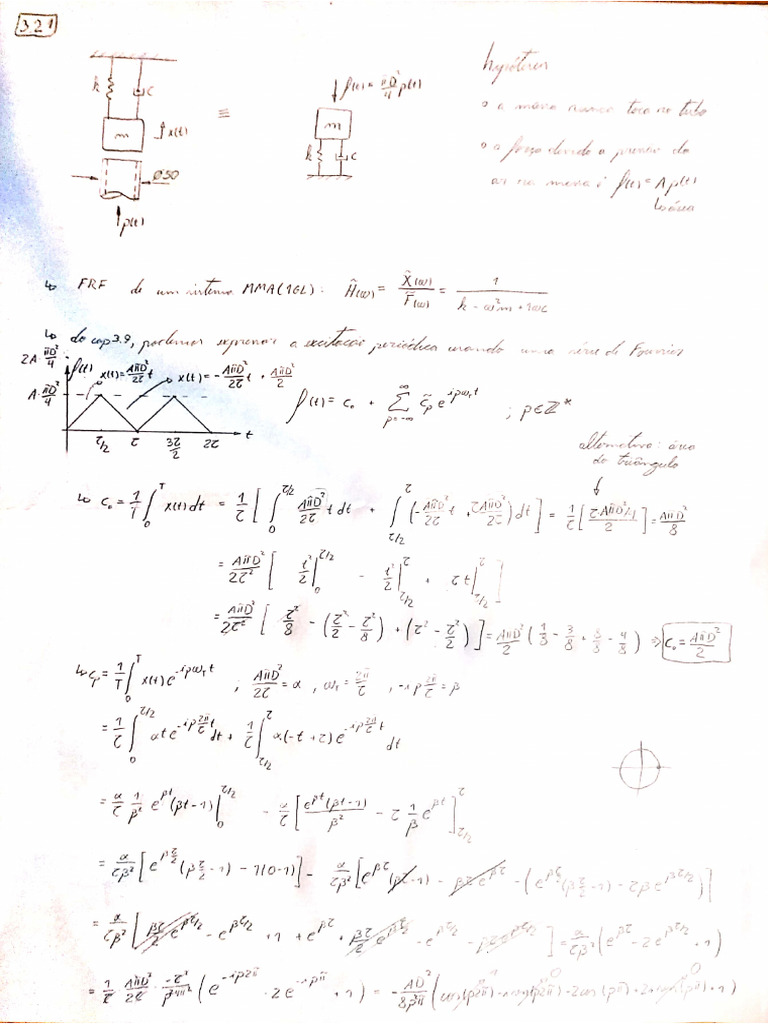 3.21
k c m x(t) ≡ f(t) = πD²/4 p(t)
Ø50
p(t)
m k c
hipóteses
◦ a massa nunca toca no tubo
◦ a força devido a pressão do
ar na massa é f(t) = A p(t)
↳ área
↳ FRF de um sistema MMA (1GL): H̃(ω) = X̃(ω)/F̃(ω) = 1/(k - ω²m + iωc)
↳ do cap 3.9, podemos expressar a excitação periódica usando uma série de Fourier
2A·πD²/4 f(t) x(t) = AπD²/2τ t x(t) = -AπD²/2τ t + AπD²/2
A·πD²/4
τ/2 τ 3τ/2 2τ t
f(t) = c₀ + ∑_{p=-∞}^{∞} c̃ₚ e^{ipω_T t} ; p∈ℤ*
alternativa: área
do triângulo
↳ c₀ = 1/T ∫₀^T x(t) dt = 1/τ [ ∫₀^{τ/2} AπD²/2τ t dt + ∫_{τ/2}^{τ} (-AπD²/2τ t + τAπD²/2τ) dt ] = AπD²/8
= AπD²/2τ² [ t²/2 |₀^{τ/2} - t²/2 |_{τ/2}^{τ} + τt |_{τ/2}^{τ} ]
= AπD²/2τ² [ τ²/8 - (τ²/2 - τ²/8) + (τ² - τ²/2) ] = AπD²/2 (1/8 - 3/8 + 8/8 - 4/8) ⇒ c₀ = AπD²/2
↳ cₚ = 1/T ∫₀^T x(t) e^{-ipω_T t} ; AπD²/2τ = α , ω_T = 2π/τ , -ip 2π/τ = β
= 1/τ ∫₀^{τ/2} αt e^{-ip 2π/τ t} dt + 1/τ ∫_{τ/2}^{τ} α(-t + τ) e^{-ip 2π/τ t} dt
= α/τ 1/β² e^{βt} (βt - 1) |₀^{τ/2} - α/τ [ e^{βt}(βt - 1)/β² - τ 1/β e^{βt} ]_{τ/2}^{τ}
= α/τβ² [ e^{βτ/2} (βτ/2 - 1) - 1(0 - 1) ] - α/τβ² [ e^{βτ} (βτ - 1) - βτe^{βτ} - ( e^{βτ/2} (βτ/2 - 1) - τβ e^{βτ/2} ) ]
= α/τβ² [ βτ/2 e^{βτ/2} - e^{βτ/2} + 1 + e^{βτ} + βτ/2 e^{βτ/2} - e^{βτ/2} - βτ e^{βτ/2} ] = α/τβ² ( e^{βτ} - 2e^{βτ/2} + 1 )
= 1/τ AπD²/2τ · -τ²/p²4π² ( e^{-ip2π} - 2e^{-ipπ} + 1 ) = -AD²/8p²π